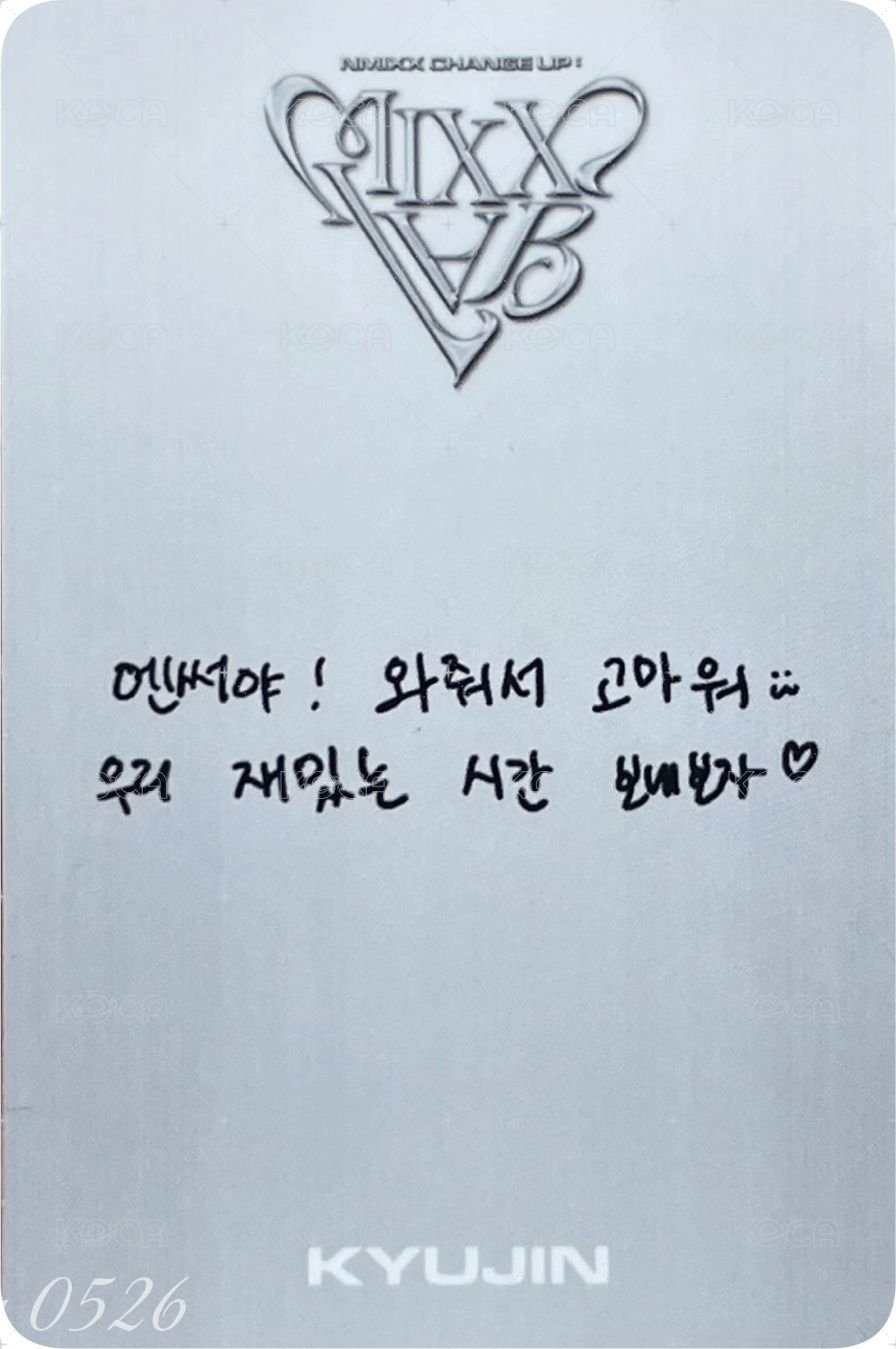 NMIXX CHANGE UP :
MIXX
LAB
엔써야! 와줘서 고마워 :)
우리 재밌는 시간 보내보자♡
KYUJIN
0526
KOCA